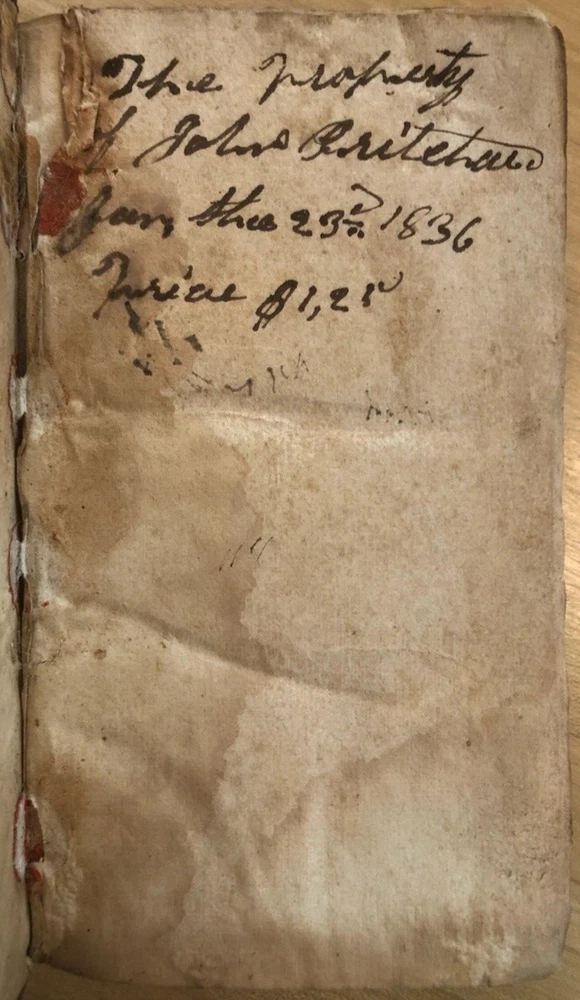 The Property
of John Pritchard
Jan, the 23d 1836
Price $1,25